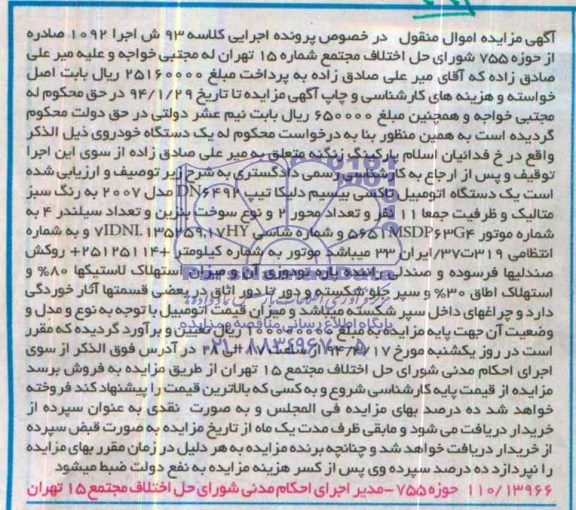 آگهی مزایده اموال منقول در خصوص پرونده اجرایی کلاسه ۹۳ ش اجرا ۱۰۹۲ صادره
از حوزه ۷۵۵ شورای حل اختلاف مجتمع شماره ۱۵ تهران له مجتبی خواجه و علیه میر علی
صادق زاده که آقای میر علی صادق زاده به پرداخت مبلغ ۲۵۱۶۰۰۰۰ ریال بابت اصل
خواسته و هزینه های کارشناسی و چاپ آگهی مزایده تا تاریخ ۹۴/۱/۲۹ در حق محکوم له
مجتبی خواجه و همچنین مبلغ ۶۵۰۰۰۰ ریال بابت نیم عشر دولتی در حق دولت محکوم
گردیده است به همین منظور بنا به درخواست محکوم له یک دستگاه خودروی ذیل الذکر
واقع در خ فدائیان اسلام پارکینگ زنگنه متعلق به میر علی صادق زاده از سوی این اجرا
توقیف و پس از ارجاع به کارشناسی رسمی دادگستری به شرح زیر توصیف و ارزیابی شده
است یک دستگاه اتومبیل تاکسی بیسیم دلیکا تیپ DN۶۴۹۲ مدل ۲۰۰۷ به رنگ سبز
متالیک و ظرفیت جمعا ۱۱ نفر و تعداد محور ۲ و نوع سوخت بنزین و تعداد سیلندر ۴ به
شماره موتور و شماره شاسی و به شماره
انتظامی ۳۱۹ت۳۷/ ایران ۳۳ میباشد موتور به شماره کیلومتر ۲۵۱۲۵۱۱۴+ روکش
صندلیها فرسوده و صندلی راننده پاره تودوزی آن و میزان استهلاک لاستیکها ۸۰% و
استهلاک اطاق ۳۰% و سپر جلو شکسته و دور تا دور اتاق در بعضی قسمتها آثار خوردگی
دارد و چراغهای داخل سپر شکسته میباشد و میزان قیمت اتومبیل با توجه به نوع و مدل و
وضعیت آن جهت پایه مزایده به مبلغ ریال تعیین و برآورد گردیده که مقرر
است در روز یکشنبه مورخ ۹۴/۳/۱۷ از ساعت در آدرس فوق الذکر از سوی
اجرای احکام مدنی شورای حل اختلاف مجتمع ۱۵ تهران از طریق مزایده به فروش برسد
مزایده از قیمت پایه کارشناسی شروع و به کسی که بالاترین قیمت را پیشنهاد کند فروخته
خواهد شد ده درصد بهای مزایده فی المجلس و به صورت نقدی به عنوان سپرده از
خریدار دریافت می شود و مابقی ظرف مدت یک ماه از تاریخ مزایده به صورت قبض سپرده
از خریدار دریافت خواهد شد و چنانچه برنده مزایده به هر دلیل در زمان مقرر بهای مزایده
را نپردازد ده درصد سپرده وی پس از کسر هزینه مزایده به نفع دولت ضبط میشود
۱۱۰/۱۳۹۶۶ حوزه ۷۵۵ – مدیر اجرای احکام مدنی شورای حل اختلاف مجتمع ۱۵ تهران
پایگاه اطلاع رسانی مناقصه و مزایده